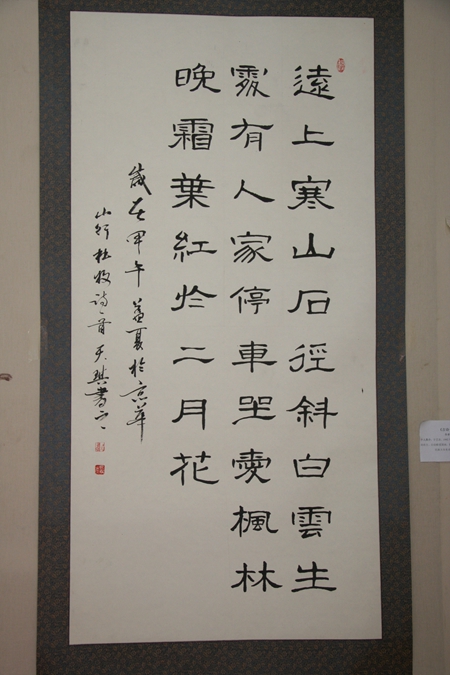 遠上寒山石徑斜白雲生
處有人家停車坐愛楓林
晚霜葉紅於二月花
歲在甲午夏於京華
山行杜牧詩一首天琪書之